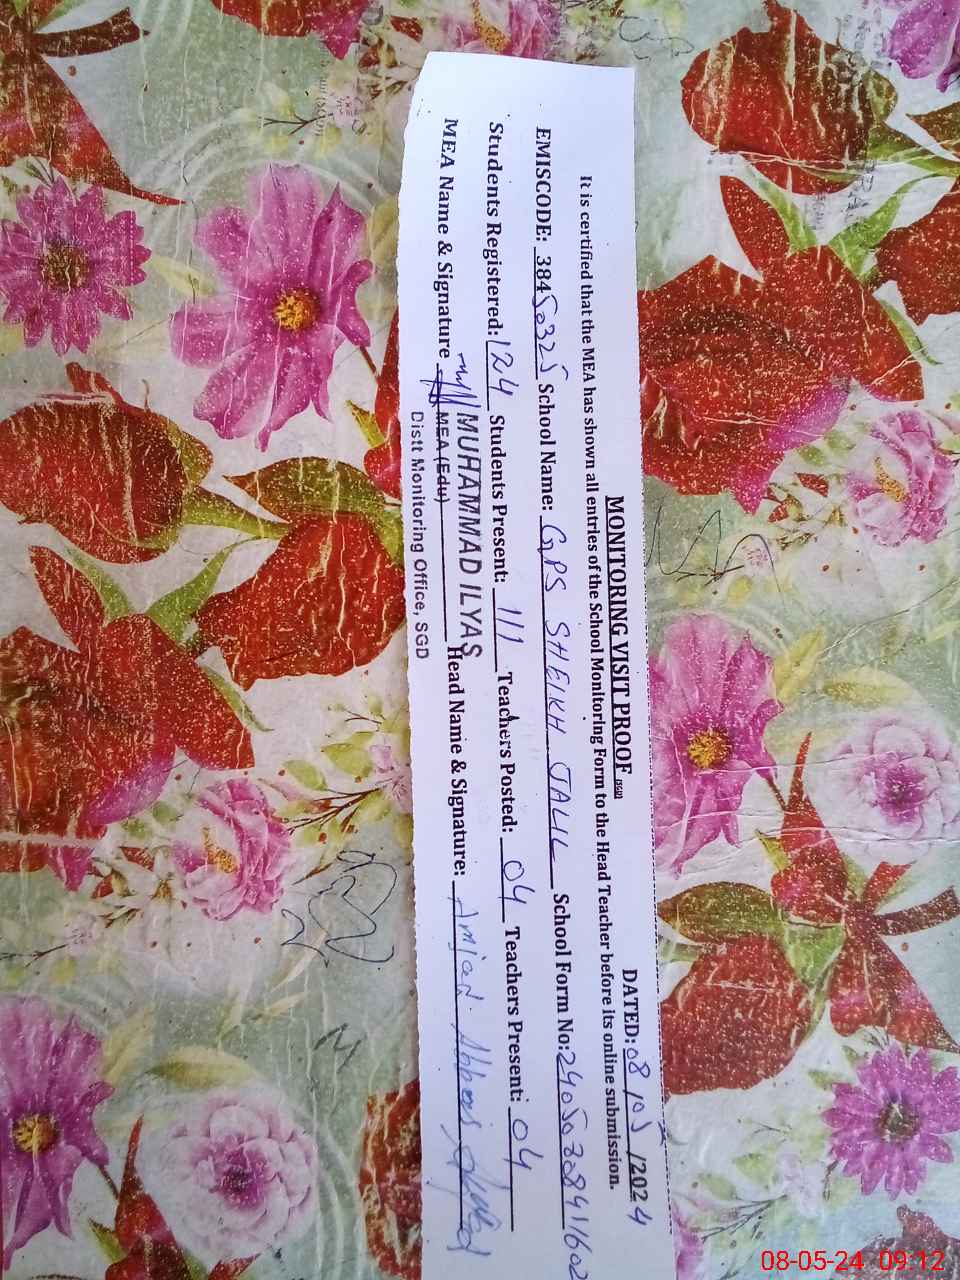 MONITORING VISIT PROOF (SSGD)
DATED: 08/05/2024
It is certified that the MEA has shown all entries of the School Monitoring Form to the Head Teacher before its online submission.
EMISCODE: 38450325 School Name: GPS SHEIKH JALIL School Form No: 240503841602
Students Registered: 124 Students Present: 111 Teachers Posted: 04 Teachers Present: 04
MEA Name & Signature MUHAMMAD ILYAS Head Name & Signature: Amjad Abbas
MEA (Edu)
Distt Monitoring Office, SGD
08-05-24 09:12